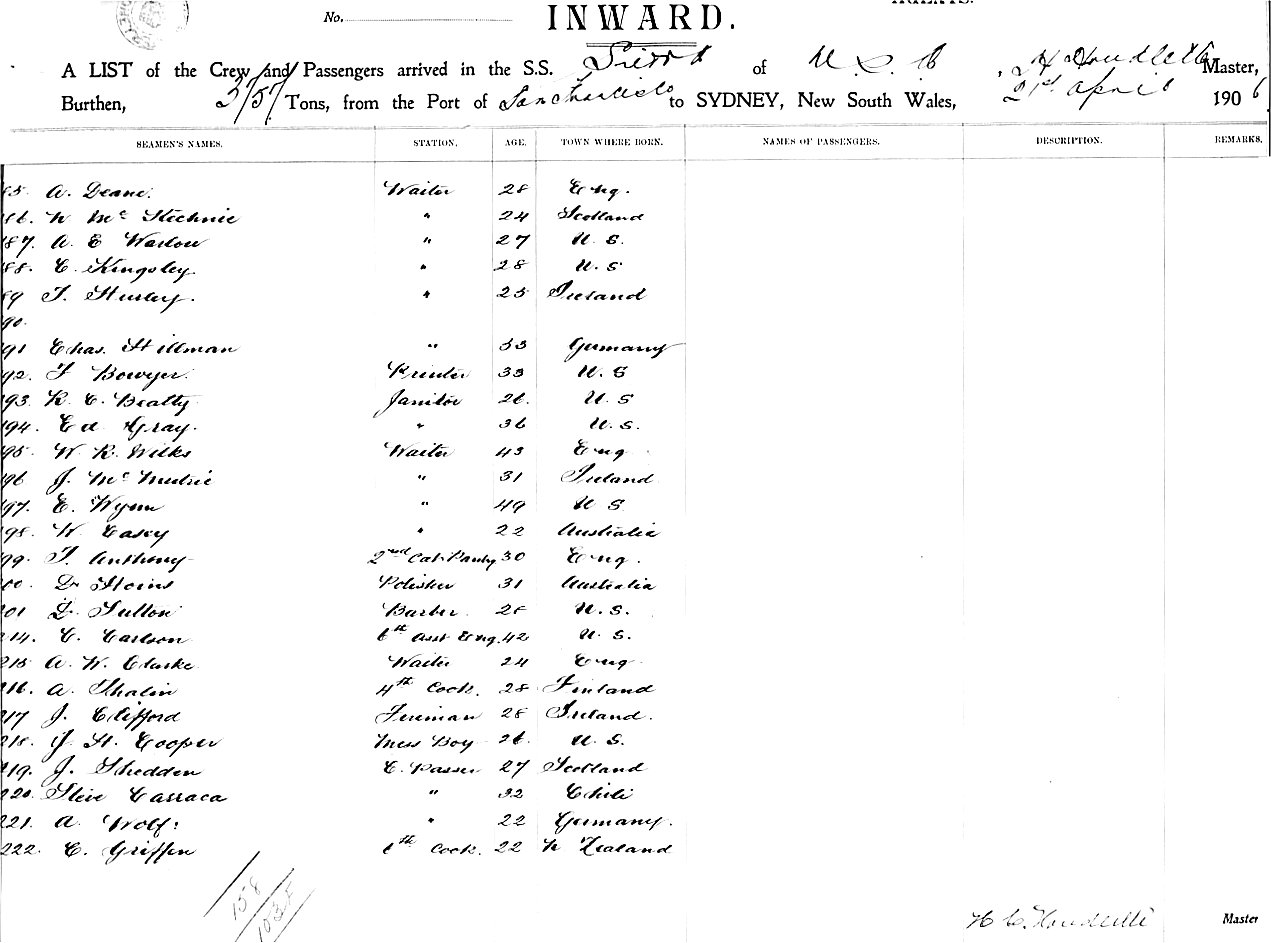 No.
INWARD.
A LIST of the Crew and Passengers arrived in the S.S. Sierra of U.S.A, H Houdlette Master,
Burthen, Tons, from the Port of San Francisco to SYDNEY, New South Wales, 21st April 1906
SEAMEN'S NAMES. STATION. AGE. TOWN WHERE BORN. NAMES OF PASSENGERS. DESCRIPTION. REMARKS.
85. A. Deane. Waiter 28 Eng.
186. N Mc Kechnie " 24 Scotland
187. A. E Warlow " 27 U. S.
188. C. Kingsley " 28 U. S
89 T. Hurley. " 25 Ireland
90.
191 Chas. Hillman " 33 Germany
192. F Bowyer. Printer 33 U. S
193. R. C. Beatty Janitor 26. U. S
194. Ed Gray. " 36 U. S.
195. W. R. Wilks Waiter 43 Eng.
196 J. Mc " 31 Ireland
197. E. Wynn " 49 U S.
198. W. Casey " 22 Australia
199. F. Anthony 2nd Cab. Pantry 30 Eng.
200. D. Waiter Polisher 31 Australia
201 D. Fulton Barber 28 U. S.
214. C. Carlson 6th Asst Eng. 42 U. S.
215 A. W. Clarke Waiter 24 Eng
216. A. Thalin 4th Cook. 28 Finland
217 J. Clifford Fireman 28 Ireland.
218. J. H. Cooper Mess Boy 26. U. S.
219. J. Shedden C. Passer 27 Scotland
220. Steve Carraca " 32 Chili
221. A. Wolf: " 22 Germany.
222. C. Griffen 6th Cook. 22 N Zealand
158
H C. Houdlette Master